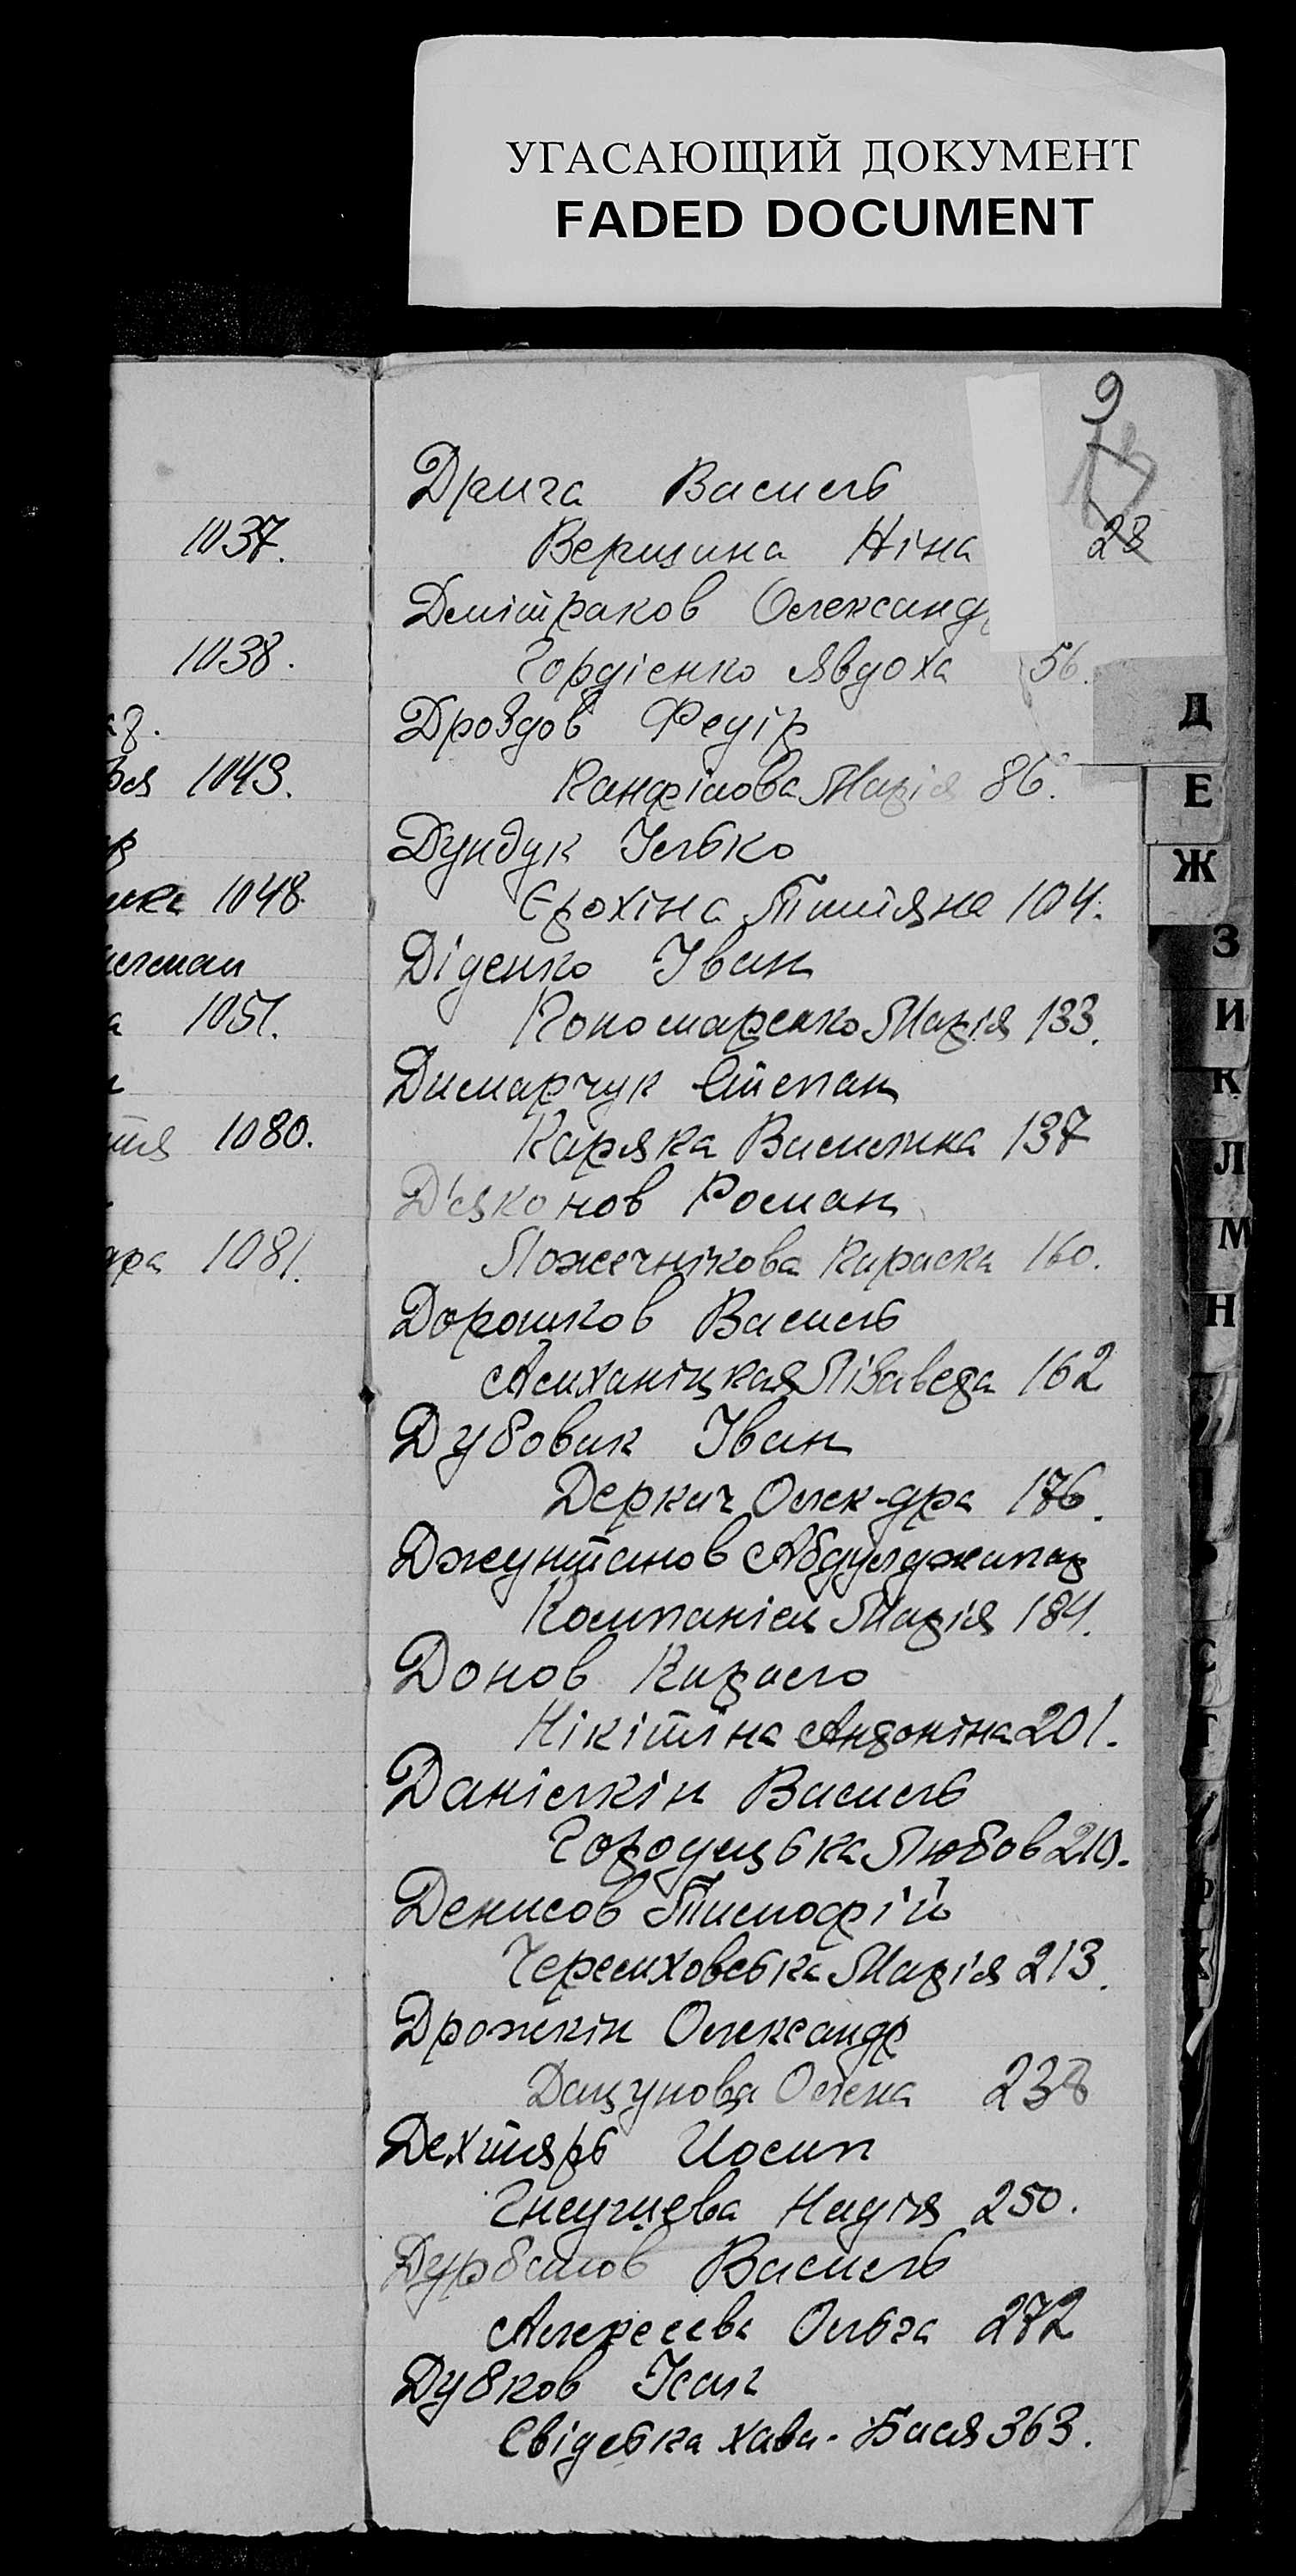 УГАСАЮЩИЙ ДОКУМЕНТ
FADED DOCUMENT
9
1037.
1038.
1043.
1048.
1051.
1080.
1081.
Дрига Василь
Вершина Ніна 28
Дмітраков Олександ
Гордієнко Явдоха 56.
Дроздов Федір
Канфілова Марія 86.
Дундук Ілько
Єрохіна Титяна 104.
Діденко Іван
Пономаренко Марія 133.
Димарчук Степан
Каряка Василина 137
Д'яконов Роман
Пожечнікова Параска 160.
Дорошков Василь
Лізаведа 162
Дубовик Іван
Деркач Олек-дра 176.
Джунтанов Абдулджипар
Компанієц Марія 184.
Донов Кирило
Нікітіна Андоніна 201.
Данілкін Василь
Городецька Любов 210.
Денисов Тимофій
Черемховська Марія 213.
Дрожкін Олександр
Дацунова Олена 238
Дехтярь Йосип
Надія 250.
Василь
Алексеєва Ольга 272
Дубков Ісак
Свідська Хава-Бася 363.
Д
Е
Ж
З
И
К
Л
М
Н